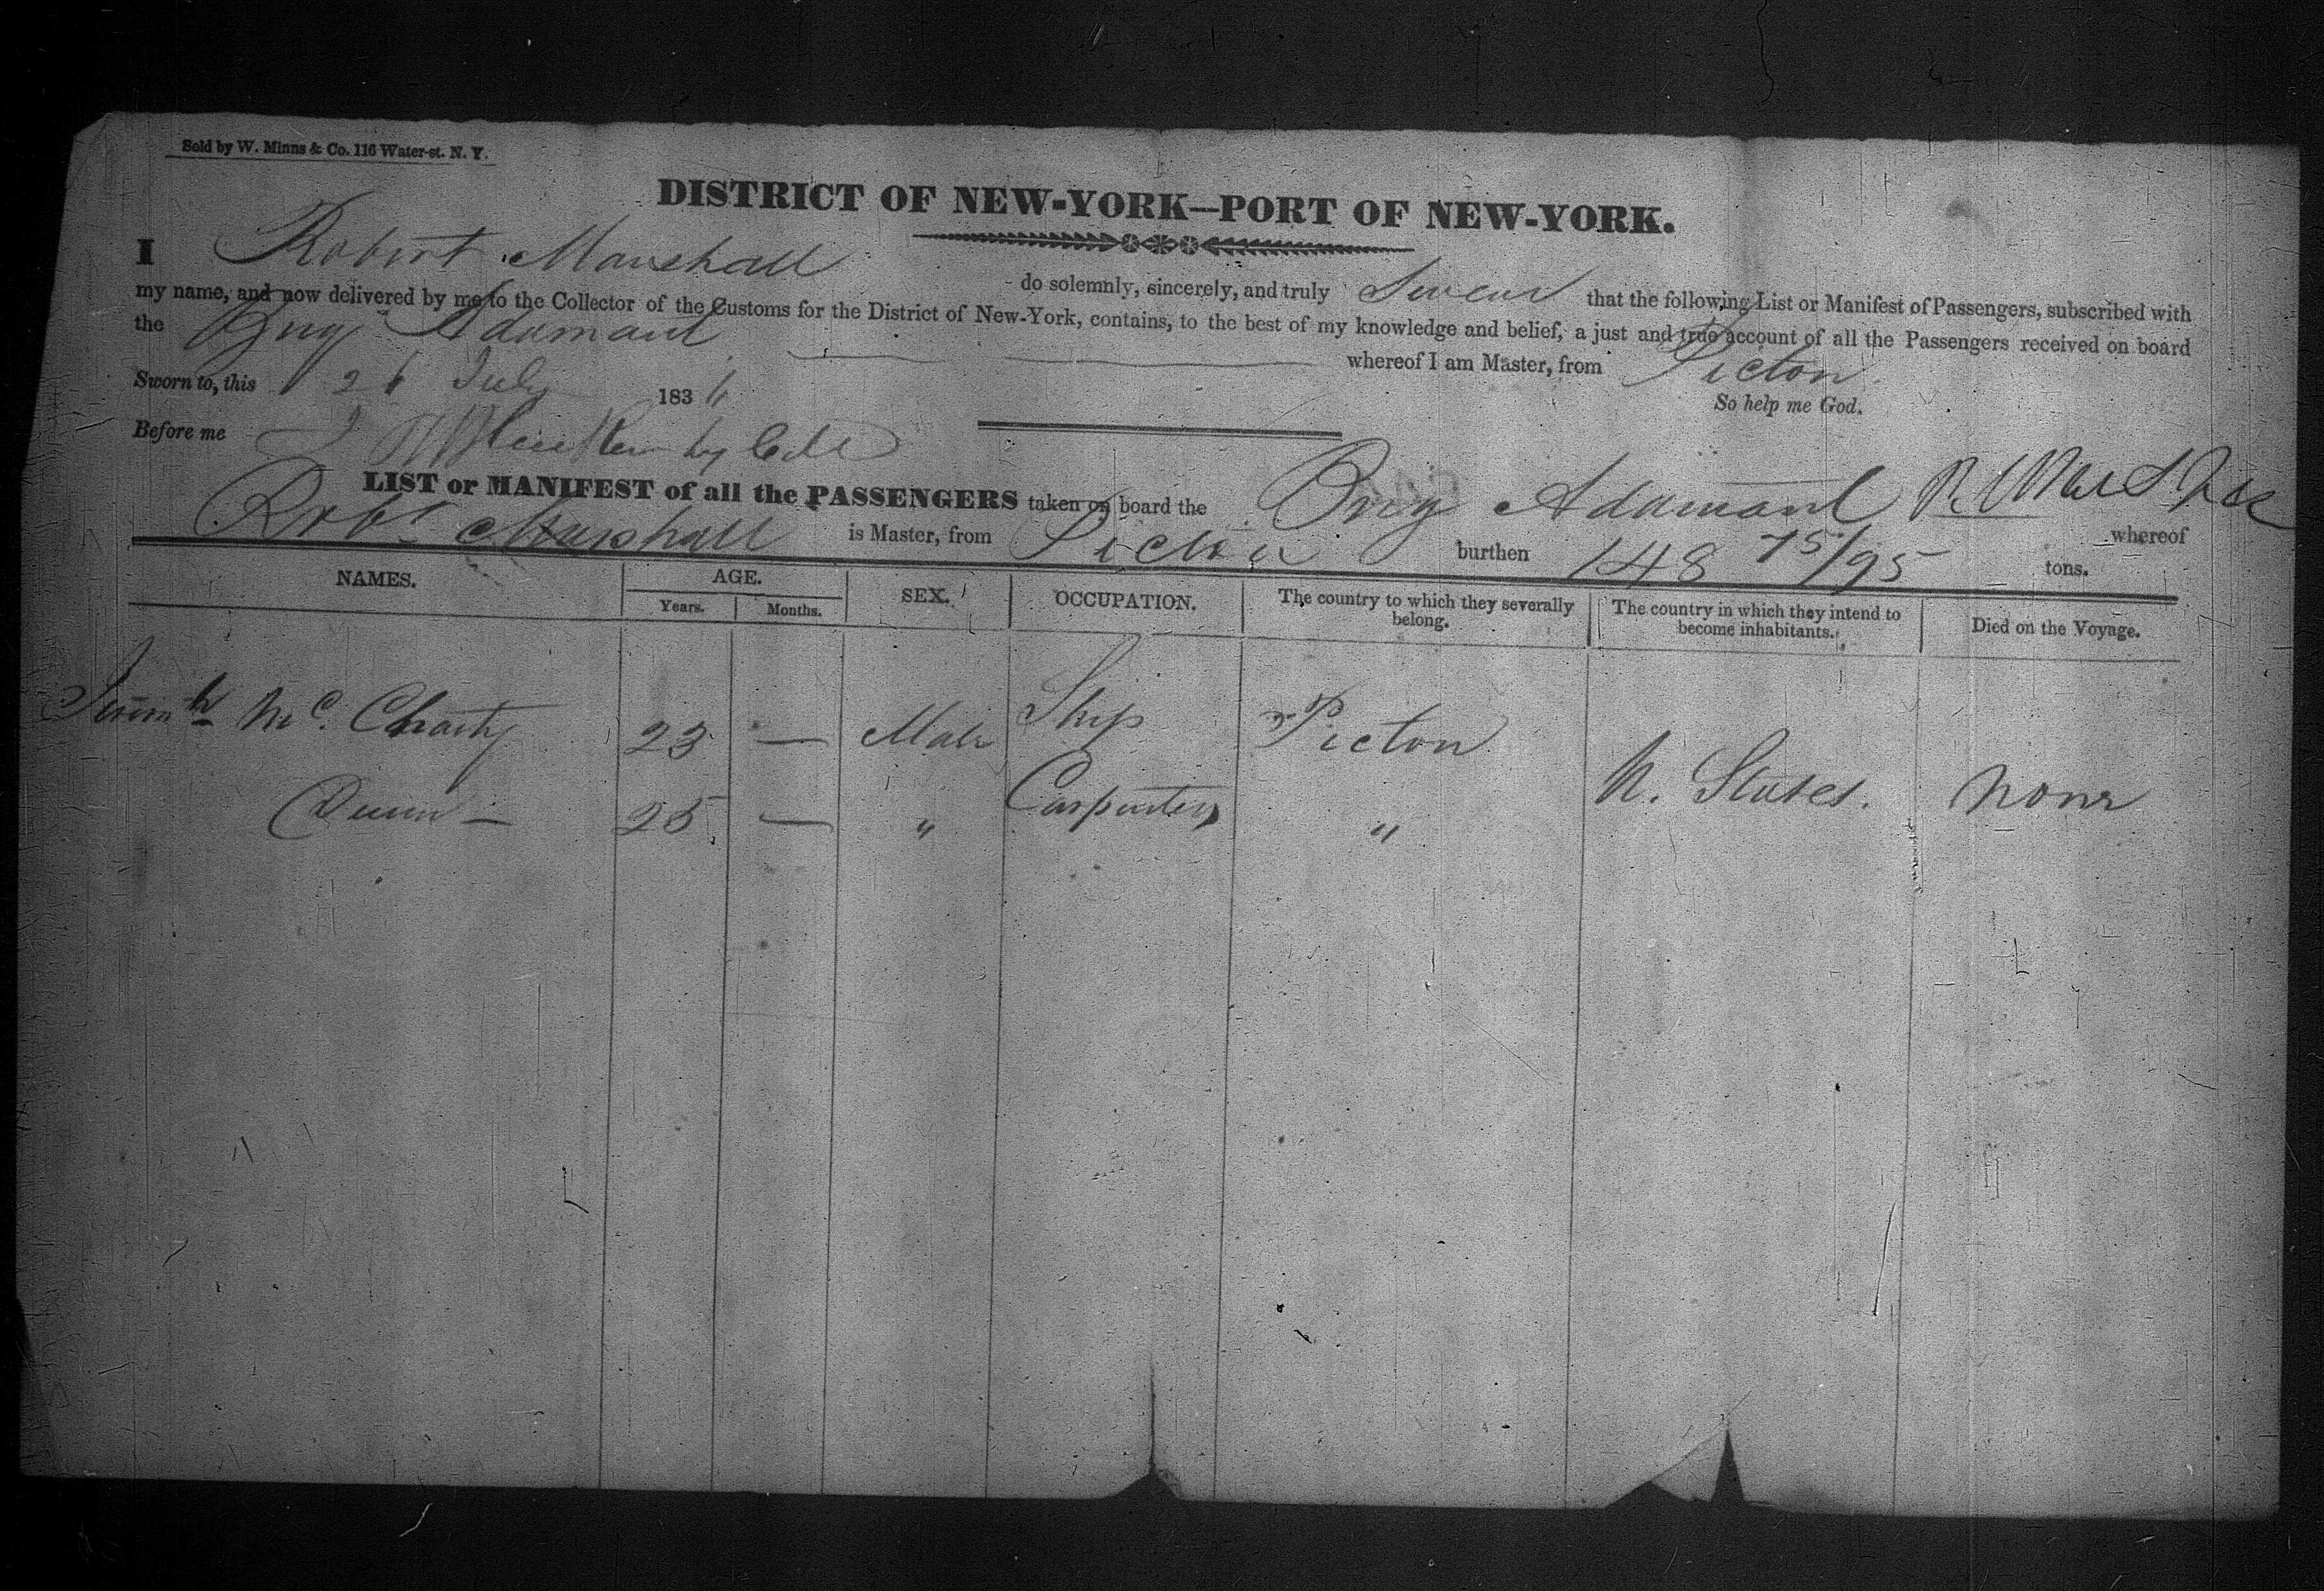 Sold by W. Minns & Co. 116 Water-st. N. Y.
DISTRICT OF NEW-YORK—PORT OF NEW-YORK.
I Robert Marshall do solemnly, sincerely, and truly Swear that the following List or Manifest of Passengers, subscribed with
my name, and now delivered by me to the Collector of the Customs for the District of New-York, contains, to the best of my knowledge and belief, a just and true account of all the Passengers received on board
the Brig Adamant whereof I am Master, from Picton
Sworn to, this 26 July 1836 So help me God.
Before me
LIST or MANIFEST of all the PASSENGERS taken on board the Brig Adamant whereof
Robt Marshall is Master, from Pictou burthen 148 75/95 tons.
NAMES. AGE. SEX. OCCUPATION. The country to which they severally belong. The country in which they intend to become inhabitants. Died on the Voyage.
Years. Months.
Mc. Charty 23 — Male Ship Picton
Dunn — 25 — " Carpenters " U. States. None